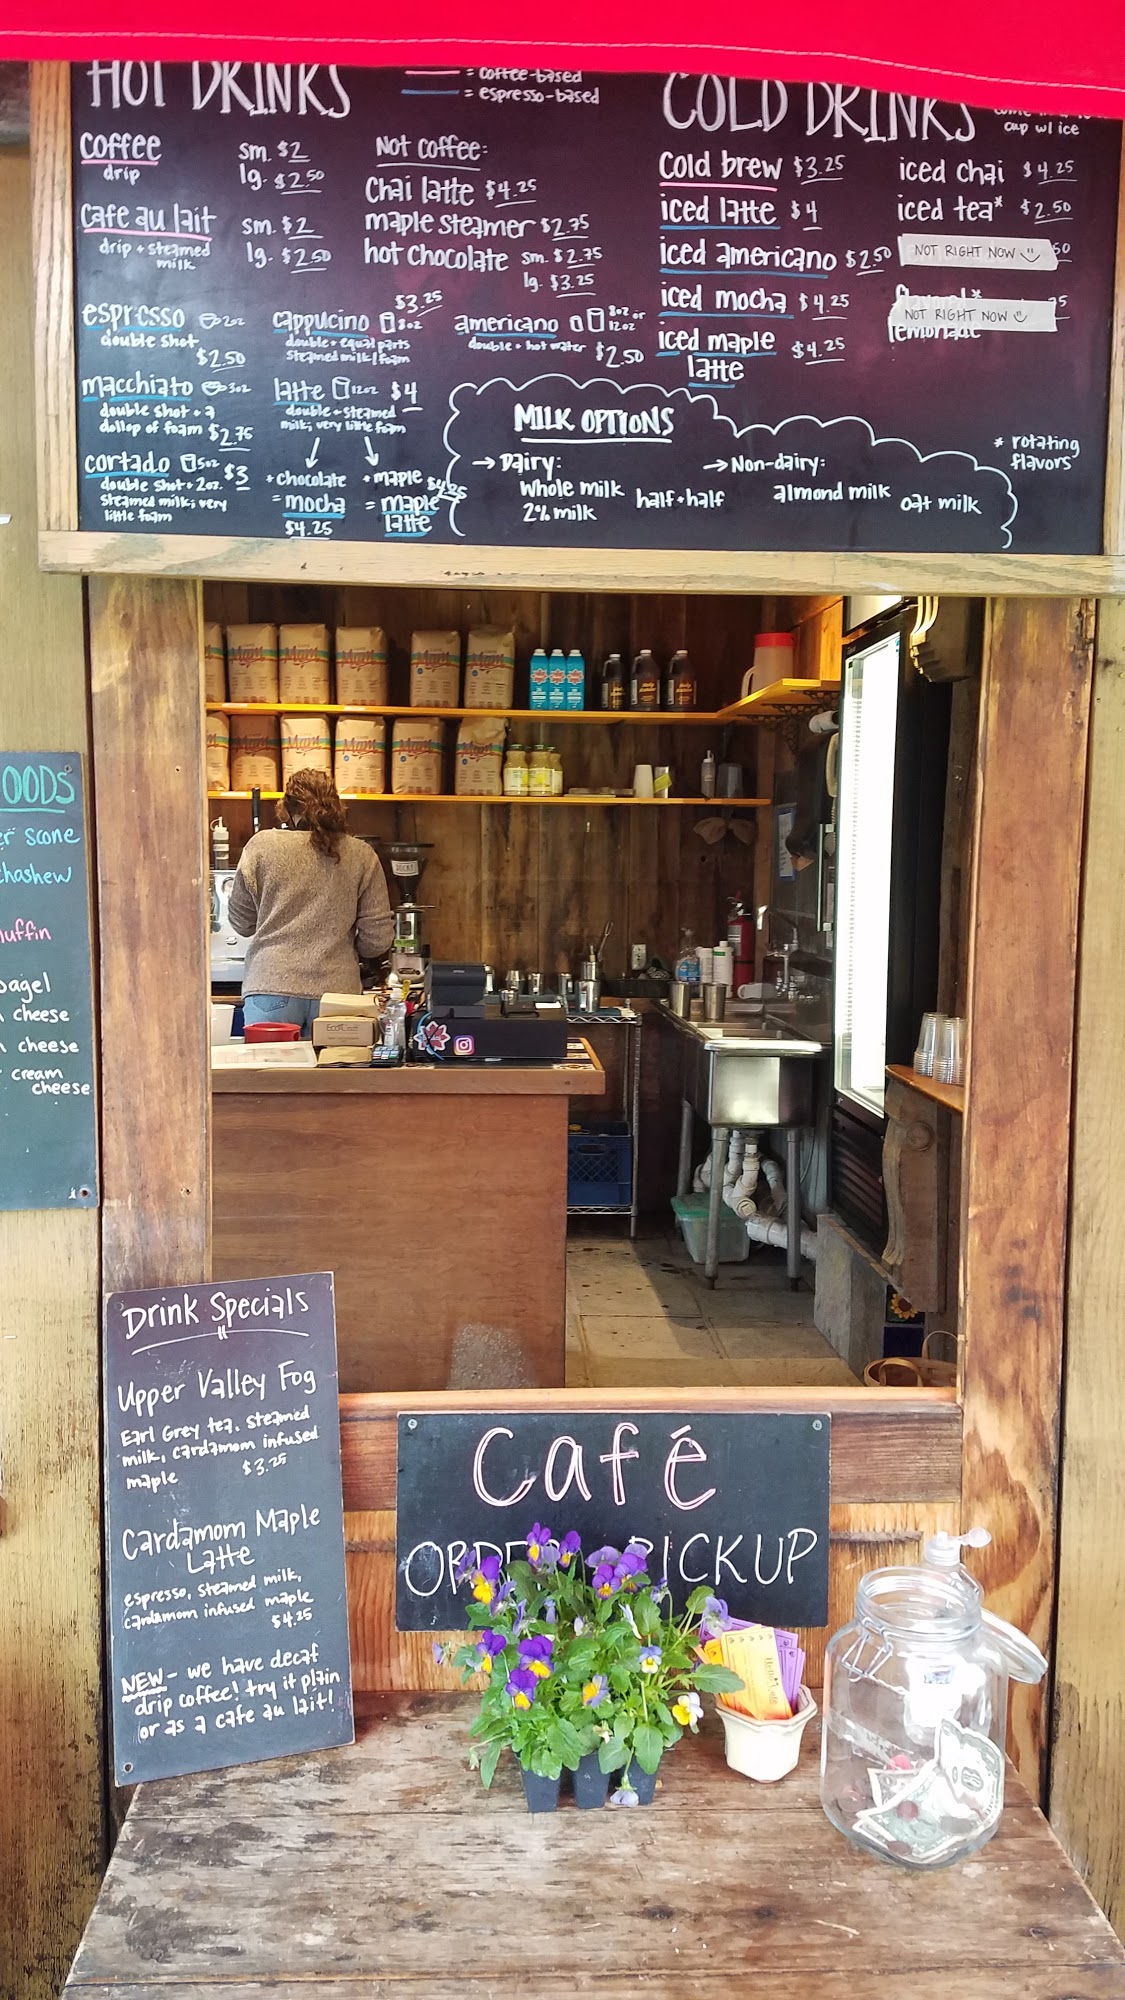 HOT DRINKS
= coffee-based
= espresso-based
coffee
drip
sm. $2
lg. $2.50
cafe au lait
drip + steamed
milk
sm. $2
lg. $2.50
Not coffee:
Chai latte $4.25
maple steamer $2.75
hot chocolate sm. $2.75
lg. $3.25
espresso 2oz
double shot
$2.50
cappucino 8oz $3.25
double + equal parts
steamed milk/foam
americano 8oz or
12oz
double + hot water $2.50
macchiato 3oz
double shot + a
dollop of foam $2.75
latte 12oz $4
double + steamed
milk; very little foam
cortado 5oz $3
double shot + 2oz.
steamed milk; very
little foam
+ chocolate
= mocha
$4.25
+ maple $4.25
= maple
latte
COLD DRINKS
cup w/ ice
cold brew $3.25
iced latte $4
iced americano $2.50
iced mocha $4.25
iced maple
latte $4.25
iced chai $4.25
iced tea* $2.50
NOT RIGHT NOW
50
flavored*
NOT RIGHT NOW
lemonade
* rotating
flavors
MILK OPTIONS
→ Dairy:
whole milk
2% milk
half + half
→ Non-dairy:
almond milk
oat milk
OODS
er scone
chashew
uffin
bagel
cheese
cheese
cream
cheese
DECAF
Drink Specials
Upper Valley Fog
Earl Grey tea, steamed
milk, cardamom infused
maple $3.25
Cardamom Maple
Latte
espresso, steamed milk,
cardamom infused maple
$4.25
NEW - we have decaf
drip coffee! try it plain
or as a cafe au lait!
Café
ORDER PICKUP